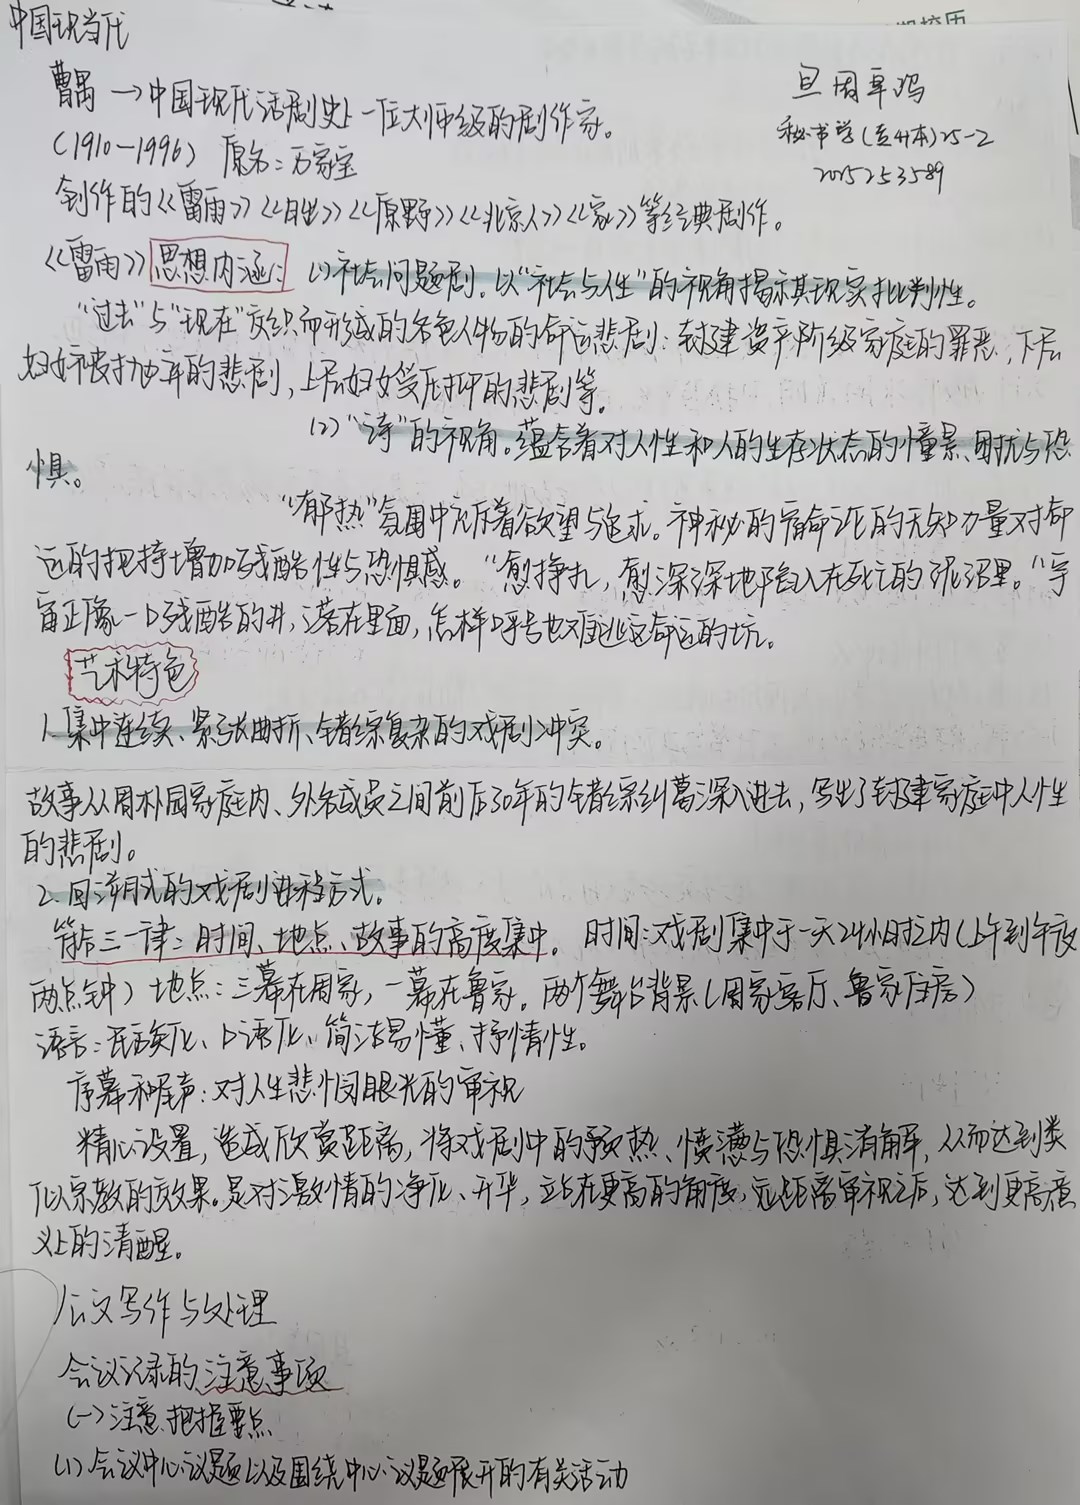 中国现当代
曹禺→中国现代话剧史上一位大师级的剧作家。
(1910-1996) 原名:万家宝
秘书学(专升本)25-2
2025253589
创作的《雷雨》《日出》《原野》《北京人》《家》等经典剧作。
《雷雨》思想内涵: (1)社会问题剧。以"社会与人生"的视角揭示其现实批判性。
"过去"与"现在"交织而形成的各色人物的命运悲剧:封建资产阶级家庭的罪恶,下层
妇女被抛弃的悲剧,上层妇女受压抑的悲剧等。
(2)"诗"的视角。蕴含着对人性和人的生存状态的憧景、困扰与恐
惧。
"郁热"氛围中充斥着欲望与追求。神秘的宿命论的无知力量对命
运的把持增加残酷性与恐惧感。"愈挣扎,愈深深地陷入在死亡的泥沼里。"宇
宙正像一口残酷的井,落在里面,怎样呼号也难逃这命运的坑。
艺术特色
1.集中连续、紧张曲折、错综复杂的戏剧冲突。
故事从周朴园家庭内、外各成员之间前后30年的错综纠葛深入进去,写出了封建家庭中人性
的悲剧。
2.回溯式的戏剧进程方式。
符合三一律:时间、地点、故事的高度集中。 时间:戏剧集中于一天24小时之内(上午到午夜
两点钟) 地点:三幕在周家,一幕在鲁家。两个舞台背景(周家客厅、鲁家住房)
语言:民族化、口语化、简洁易懂、抒情性。
序幕和尾声:对人生悲悯眼光的审视
精心设置,造成欣赏距离,将戏剧中的郁热、愤懑与恐惧消解,从而达到类
似宗教的效果。是对激情的净化、升华,立站在更高的角度,远距离审视之后,达到更高意
义上的清醒。
公文写作与处理
会议记录的注意事项
(一)注意把握要点
(1)会议中心议题以及围绕中心议题展开的有关活动